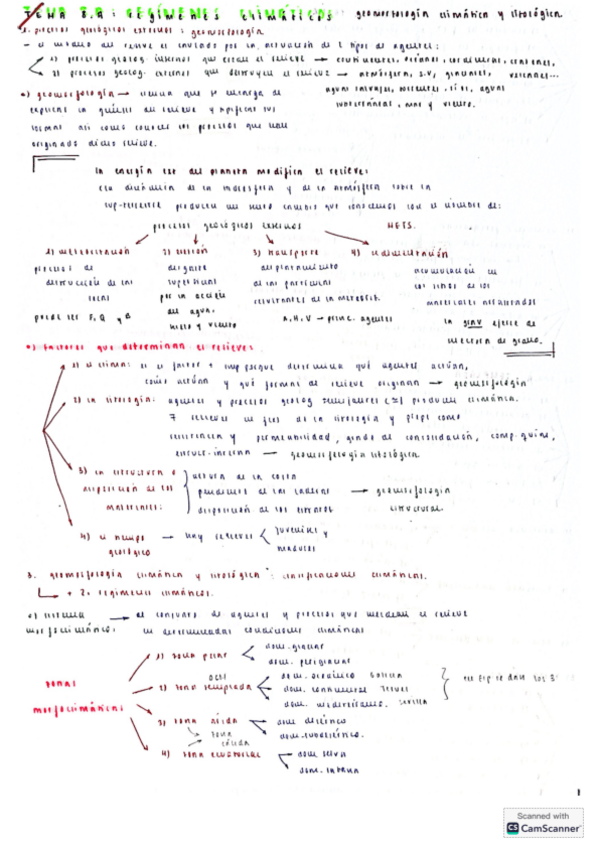 TEMA 8.A: REGÍMENES CLIMÁTICOS geomorfología climática y litológica.
1. procesos geológicos externos: geomorfología
- el modelado del relieve es causado por la actuación de 2 tipos de agentes:
1) procesos geolog. internos que crean el relieve
2) procesos geolog. externos que destruyen el relieve → atmósfera, s.v, glaciares,
aguas salvajes, torrentes, ríos, aguas
subterráneas, mar y viento.
•) geomorfología → ciencia que se encarga de
explicar la génesis del relieve y tipificar sus
formas así como conocer los procesos que han
originado dicho relieve.
la energía ext del planeta modifica el relieve:
la dinámica de la hidrosfera y de la atmósfera sobre la
superficie producen un cambio que conocemos con el nombre de:
procesos geológicos externos METS.
1) meteorización 2) erosión 3) transporte 4) sedimentación
procesos de desgaste desplazamiento acumulación en
destrucción de las superficial de las partículas las zonas de los
rocas por la acción resultantes de la meteoriz. materiales
puede ser F, Q y B del agua, A, H, V → princ. agentes la grav ejerce de
hielo y viento
•) factores que determinan el relieve:
1) el clima: es el factor + imp porque determina qué agentes actúan,
cómo actúan y qué formas de relieve originan → geomorfología
2) la litología: agentes y procesos geolog producen
≠ relieves en func de la litología y props como
resistencia y permeabilidad, grado de consolidación, comp. quím,
estruct. interna → geomorfología litológica.
3) la estructura o
disposición de los → geomorfología
materiales: disposición de los estratos estructural.
4) el tiempo → hay relieves juveniles y
geológico maduros
3. geomorfología climática y litológica: clasificaciones climáticas.
+ 2. regímenes climáticos.
•) sistema → el conjunto de agentes y procesos que modelan el relieve
morfoclimático: en determinadas condiciones climáticas
zonas
morfoclimáticas
1) zona polar dom. glaciar
dom. periglaciar
2) zona templada dom. oceánico Galicia
dom. continental Teruel en Esp se dan los 3
dom. mediterráneo. Sevilla
3) zona árida dom. desértico
zona cálida dom. subdesértico.
4) zona ecuatorial dom. selva
dom. sabana
1
Scanned with
CS CamScanner